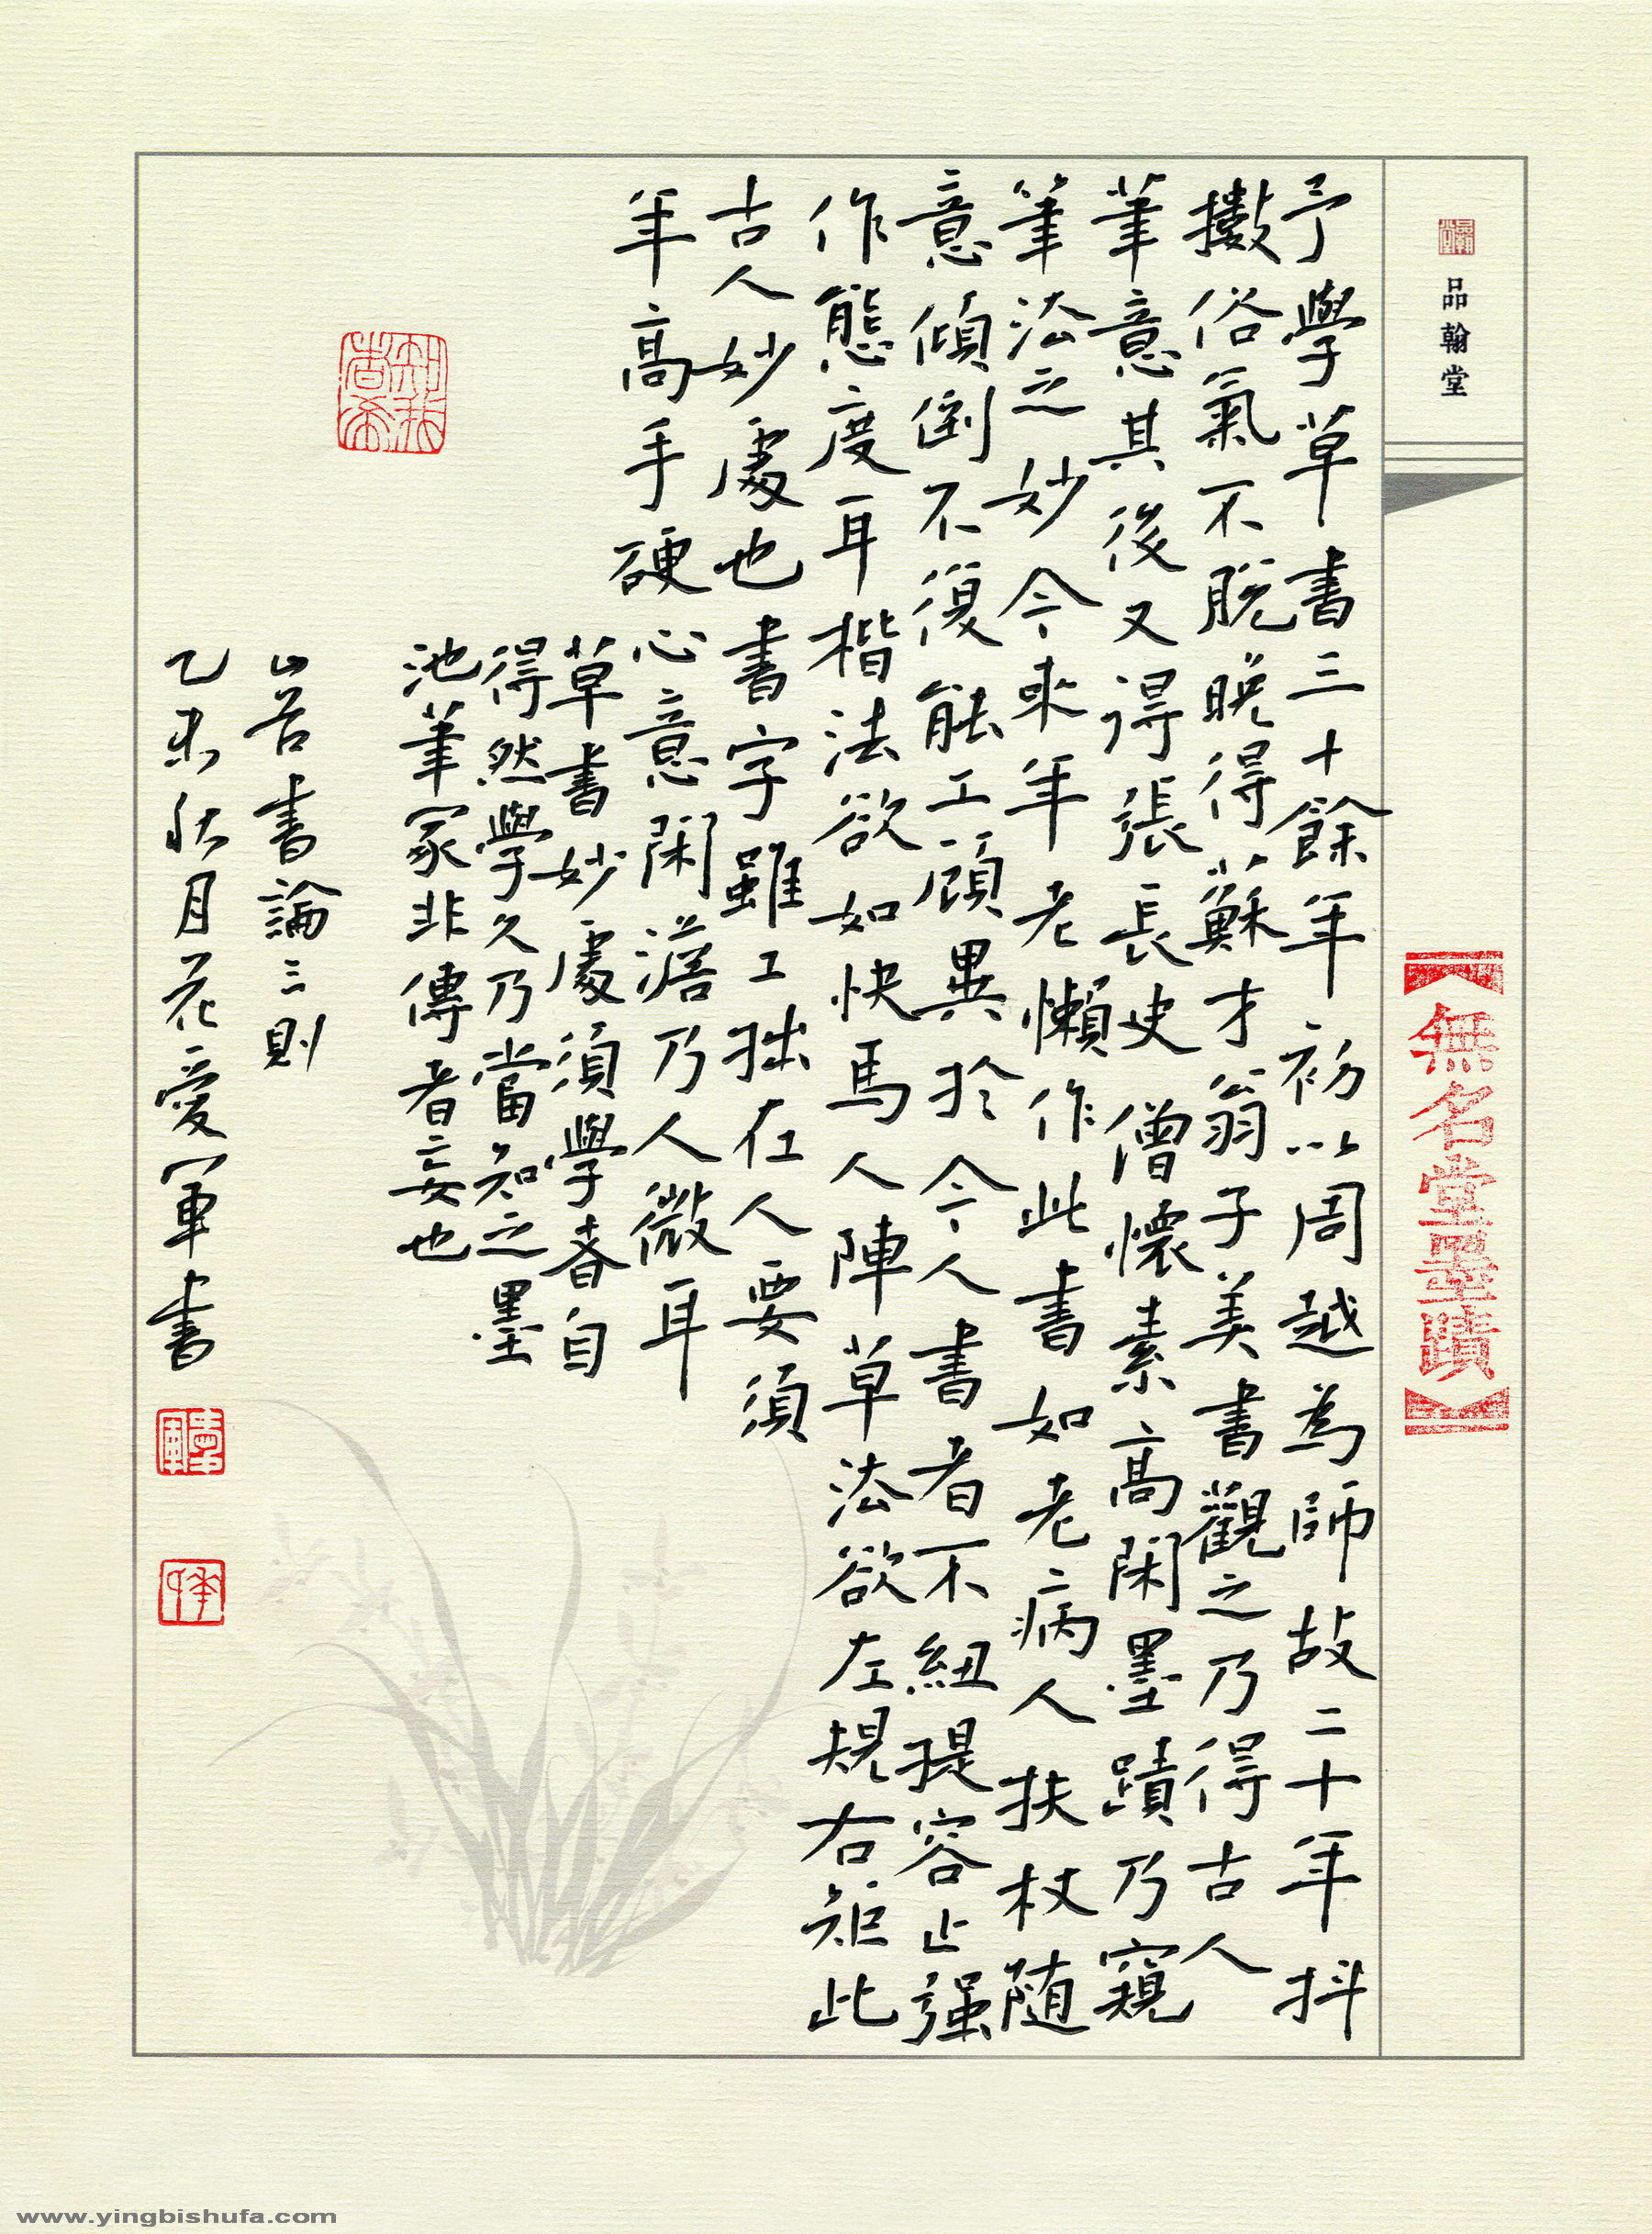 品翰堂
【無名堂墨蹟】
予學草書三十餘年初以周越為師故二十年抖
擻俗氣不脫晚得蘇才翁子美書觀之乃得古人
筆意其後又得張長史僧懷素高閑墨蹟乃窺
筆法之妙今來年老懶作此書如老病人扶杖随
意傾倒不復能工顧異於今人書者不紐提容止强
作態度耳楷法欲如快馬人陣草法欲左規右矩此
古人妙處也書字雖工拙在人要須
年高手硬心意閑澹乃人微耳
草書妙處須學者自
得然學久乃當知之墨
池筆冢非傳者妄也
山谷書論三則
乙未秋月花愛軍書
www.yingbishufa.com